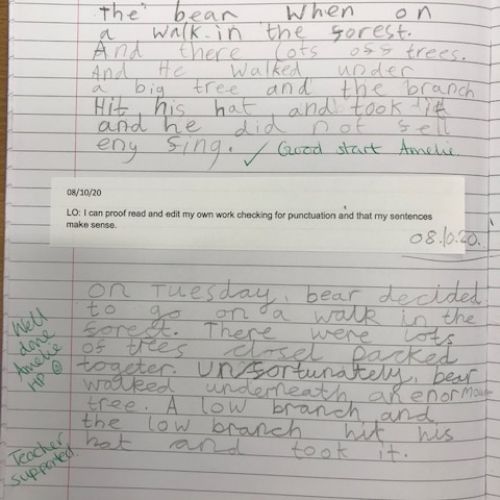 The bear When on
a walk in the forest.
And there lots off trees.
And He walked under
a big tree and the branch
Hit his hat and took it
and he did not sell
eny sing. ✓ Good start Amelie.
08/10/20
LO: I can proof read and edit my own work checking for punctuation and that my sentences
make sense.
08.10.20.
on Tuesday, bear decided
to go on a walk in the
forest. There were lots
of trees closel packed
togeter. Unfortunately, bear
walked underneath an enormous
tree. A low branch and
the low branch hit his
hat and took it.
Well
done
Amelie
HP
Teacher
supported